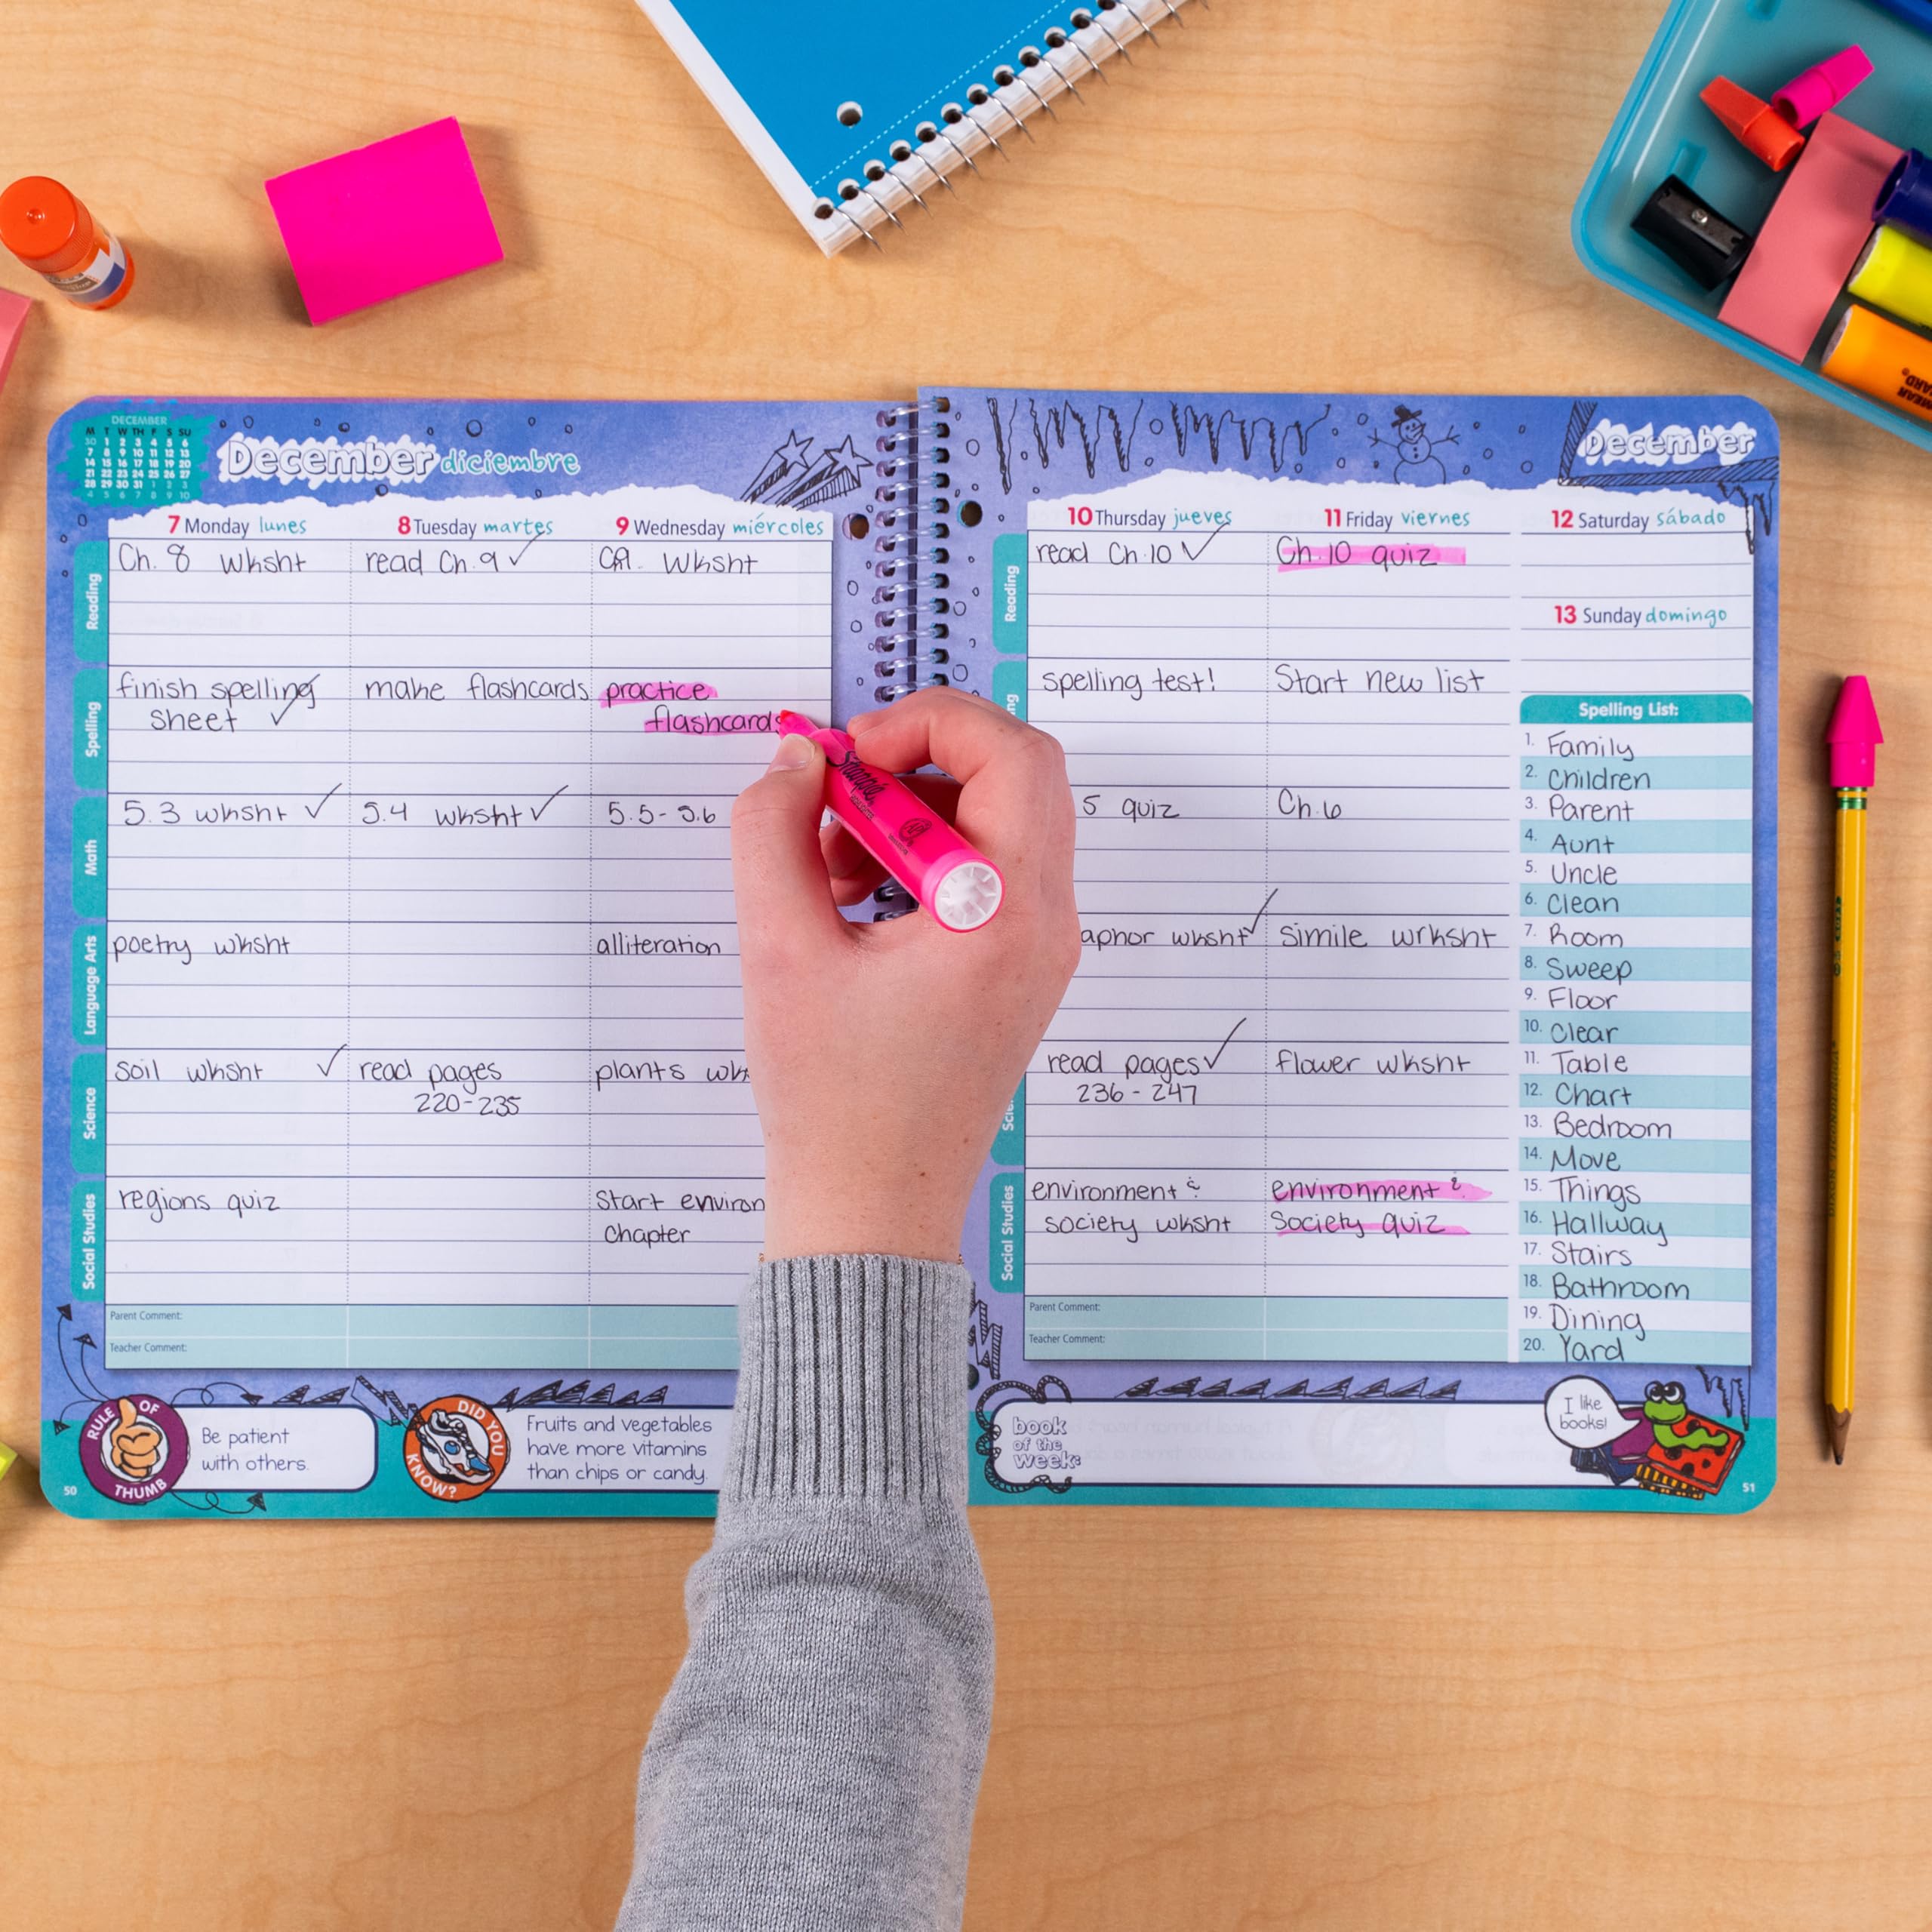 DECEMBER
M T W TH F S SU
30 1 2 3 4 5 6
7 8 9 10 11 12 13
14 15 16 17 18 19 20
21 22 23 24 25 26 27
28 29 30 31 1 2 3
4 5 6 7 8 9 10
December diciembre
7 Monday lunes
8 Tuesday martes
9 Wednesday miércoles
Reading
Ch. 8 wksht
read Ch. 9 ✓
Wksht
Spelling
finish spelling
sheet ✓
make flashcards
practice
flashcards
Math
5.3 wksht ✓
5.4 wksht ✓
5.5-5.6
Language Arts
poetry wksht
alliteration
Science
soil wksht ✓
read pages
220-235
plants
Social Studies
regions quiz
Start environ
chapter
Parent Comment:
Teacher Comment:
RULE OF THUMB
Be patient
with others.
DID YOU KNOW?
Fruits and vegetables
have more vitamins
than chips or candy.
50
Sharpie
December
10 Thursday jueves
11 Friday viernes
12 Saturday sábado
13 Sunday domingo
Reading
read Ch. 10 ✓
Ch. 10 quiz
ng
spelling test!
Start new list
5 quiz
Ch. 6
aphor wksht ✓
simile wrksht
Scie
read pages ✓
236 - 247
flower wksht
Social Studies
environment &
society wksht
environment &
Society quiz
Parent Comment:
Teacher Comment:
Spelling List:
1. Family
2. Children
3. Parent
4. Aunt
5. Uncle
6. Clean
7. Room
8. Sweep
9. Floor
10. Clear
11. Table
12. Chart
13. Bedroom
14. Move
15. Things
16. Hallway
17. Stairs
18. Bathroom
19. Dining
20. Yard
book
of the
week:
I like
books!
51